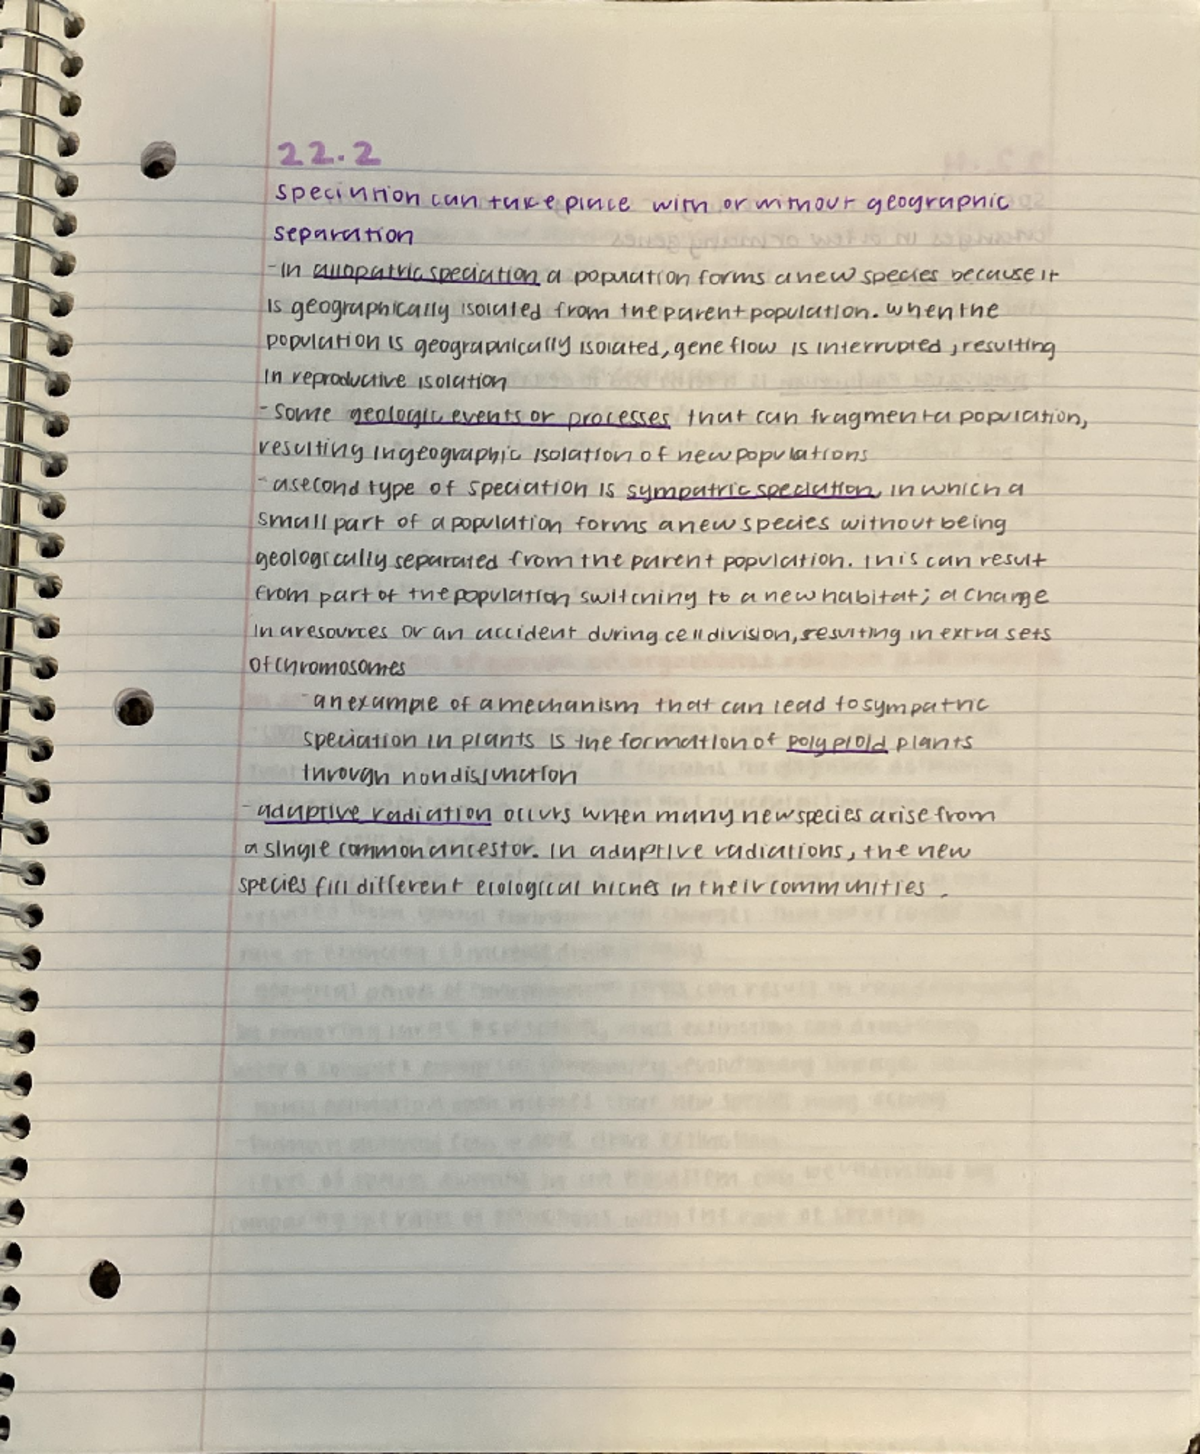 22.2
speciation can take place with or without geographic
separation
-in allopatric speciation a population forms a new species because it
is geographically isolated from the parent population. when the
population is geographically isolated, gene flow is interrupted, resulting
in reproductive isolation
-some geologic events or processes that can fragment a population,
resulting in geographic isolation of new populations
-a second type of speciation is sympatric speciation, in which a
small part of a population forms a new species without being
geologically separated from the parent population. this can result
from part of the population switching to a new habitat; a change
in a resources or an accident during cell division, resulting in extra sets
of chromosomes
-an example of a mechanism that can lead to sympatric
speciation in plants is the formation of polyploid plants
through nondisjunction
-adaptive radiation occurs when many new species arise from
a single common ancestor. in adaptive radiations, the new
species fill different ecological niches in their communities.